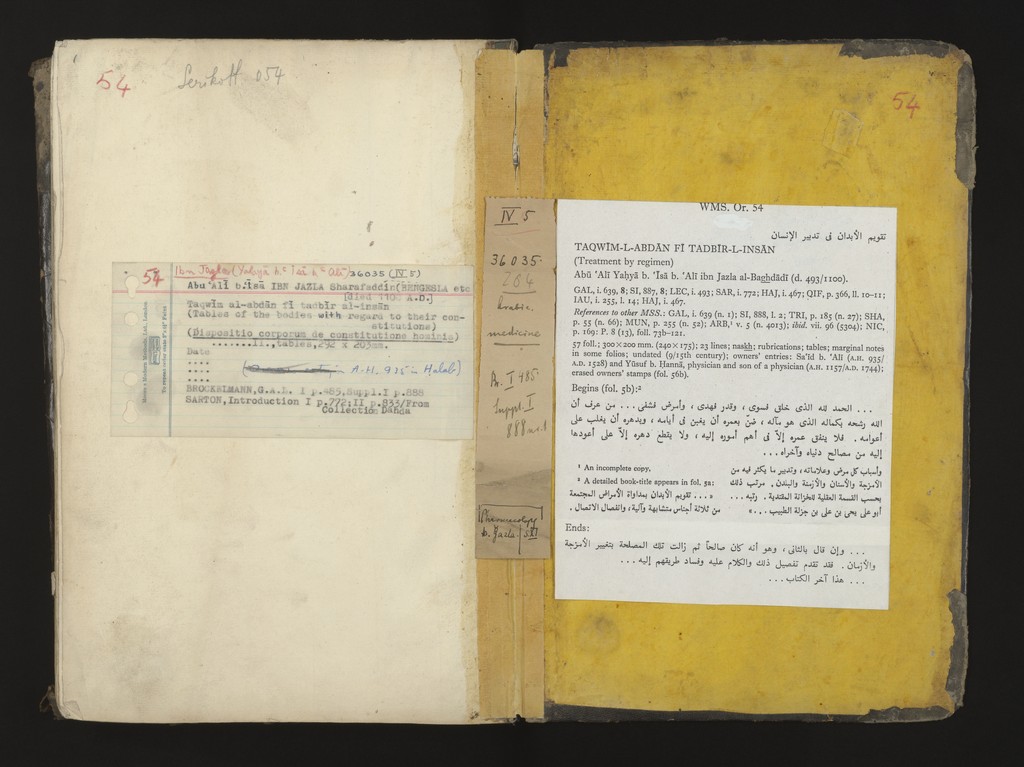 54
Serikoff. 054
54 Ibn Jazla (Yaḥyā b. ʿĪsā b. ʿAlī) 36035 (IV 5)
Abu 'Alī b.ʿIsā IBN JAZLA Sharafaddin(BENGESLA etc
[died 1100 A.D.]
Taqwīm al-abdān fī tadbīr al-insān
(Tables of the bodies with regard to their con-
stitutions)
(Dispositio corporum de constitutione hominis)
.......ll.,tables,292 x 203mm.
Date
....
.... A.H. 935 in Halab)
....
BROCKELMANN,G.A.L. I p.485,Suppl.I p.888
SARTON,Introduction I p.772;II p.833/From
Collection Dahda
IV 5
36035
264
Arabic
medicine
Br. I 485
Suppl. I
888
Pharmacology
b. Gazla
54
WMS. Or. 54
تقويم الأبدان فى تدبير الإنسان
TAQWĪM-L-ABDĀN FĪ TADBĪR-L-INSĀN
(Treatment by regimen)
Abū 'Alī Yaḥyā b. 'Īsā b. 'Alī ibn Jazla al-Baghdādī (d. 493/1100).
GAL, i. 639, 8; SI, 887, 8; LEC, i. 493; SAR, i. 772; HAJ, i. 467; QIF, p. 366, ll. 10–11;
IAU, i. 255, l. 14; HAJ, i. 467.
References to other MSS.: GAL, i. 639 (n. 1); SI, 888, l. 2; TRI, p. 185 (n. 27); SHA,
p. 55 (n. 66); MUN, p. 255 (n. 52); ARB,¹ v. 5 (n. 4013); ibid. vii. 96 (5304); NIC,
p. 169: P. 8 (13), foll. 73b–121.
57 foll.; 300×200 mm. (240×175); 23 lines; naskh; rubrications; tables; marginal notes
in some folios; undated (9/15th century); owners' entries: Sa'īd b. 'Alī (A.H. 935/
A.D. 1528) and Yūsuf b. Ḥannā, physician and son of a physician (A.H. 1157/A.D. 1744);
erased owners' stamps (fol. 56b).
Begins (fol. 5b):²
... الحمد لله الذى خلق فسوى، وقدر فهدى، وأمرض فشفى... من عرف أن
الله رشحه بكماله الذى هو مآله، ضنّ بعمره أن يغبن فى أيامه، وبدهره أن يغلب على
أعوامه. فلا ينفق عمره إلاّ فى أهم أموره إليه، ولا يقطع دهره إلاّ على أعودها
إليه من مصالح دنياه وآخراه...
¹ An incomplete copy.
² A detailed book-title appears in fol. 5a:
«... تقويم الأبدان بمداواة الأمراض المجتمعة
من ثلاثة أجناس متشابهة وآلية، وانفصال الاتصال.
وأسباب كل مرض وعلاماته، وتدبير ما يكثر فيه من
الأمزجة والأسنان والأزمنة والبلدن. مرتب ذلك
بحسب القسمة العقلية للخزانة المقتدية. رتبه...
أبو على يحيى بن على بن جزلة الطبيب...»
Ends:
... وإن قال بالثانى، وهو أنه كان صالحاً ثم زالت تلك المصلحة بتغيير الأمزجة
والأزمان. فقد تقدم تفصيل ذلك والكلام عليه وفساد طريقهم إليه...
... هذا آخر الكتاب...